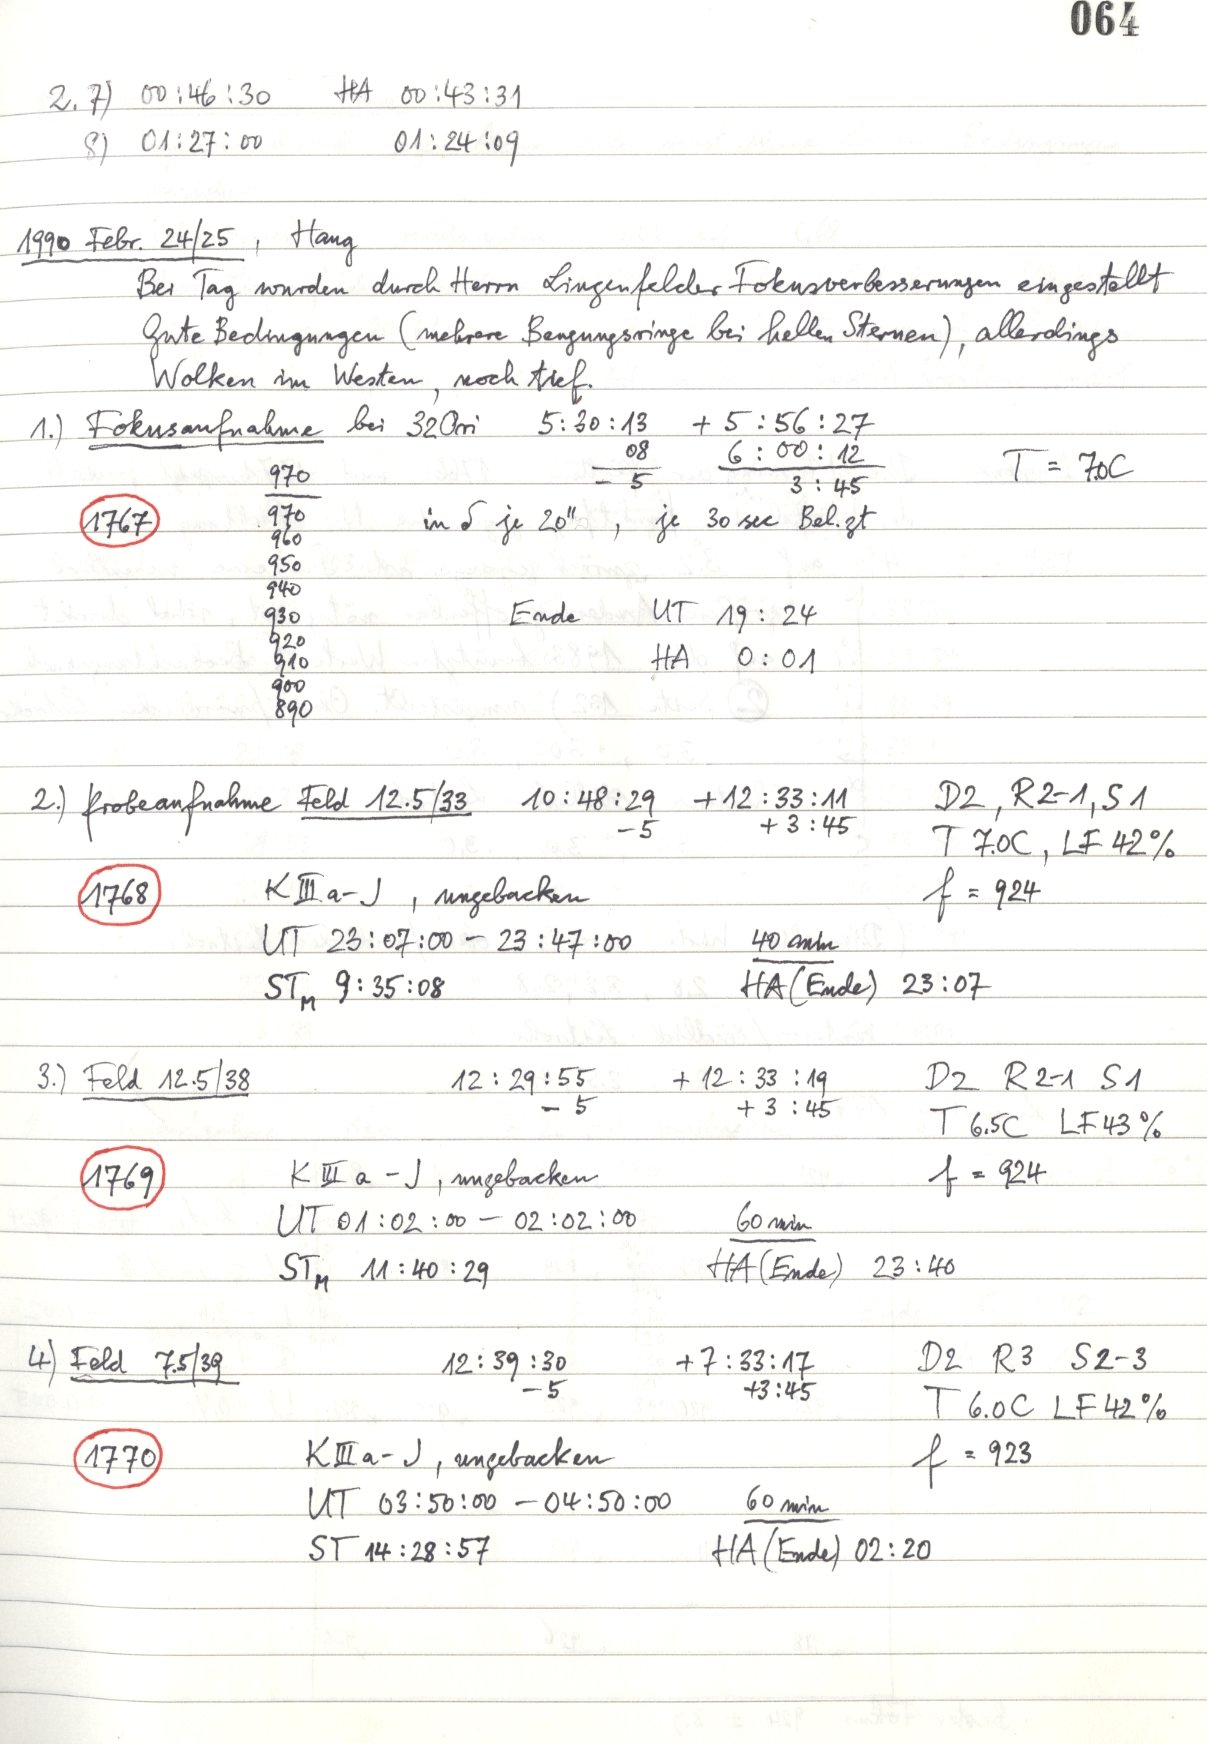 064
2. 7) 00:46:30 HA 00:43:31
8) 01:27:00 01:24:09
1990 Febr. 24/25, Hang
Bei Tag wurden durch Herrn Lingenfelder Fokusverbesserungen eingestellt
Gute Bedingungen (mehrere Beugungsringe bei hellen Sternen), allerdings
Wolken im Westen, noch tief.
1.) Fokusaufnahme bei 32 Ori 5:30:13 + 5:56:27
08 6:00:12 T = 7.0C
970 - 5 3:45
1767 970 in δ je 20", je 30 sec Bel.zt
960
950
940
930 Ende UT 19:24
920
910 HA 0:01
900
890
2.) Probeaufnahme Feld 12.5/33 10:48:29 +12:33:11 D2, R2-1, S1
-5 +3:45 T 7.0C, LF 42%
1768 K III a-J, ungebacken f = 924
UT 23:07:00 - 23:47:00 40 min
ST M 9:35:08 HA (Ende) 23:07
3.) Feld 12.5/38 12:29:55 +12:33:19 D2 R2-1 S1
- 5 +3:45 T 6.5C LF 43%
1769 K III a-J, ungebacken f = 924
UT 01:02:00 - 02:02:00 60 min
ST M 11:40:29 HA (Ende) 23:40
4) Feld 7.5/39 12:39:30 +7:33:17 D2 R3 S2-3
-5 +3:45 T 6.0C LF 42%
1770 K III a-J, ungebacken f = 923
UT 03:50:00 - 04:50:00 60 min
ST 14:28:57 HA (Ende) 02:20